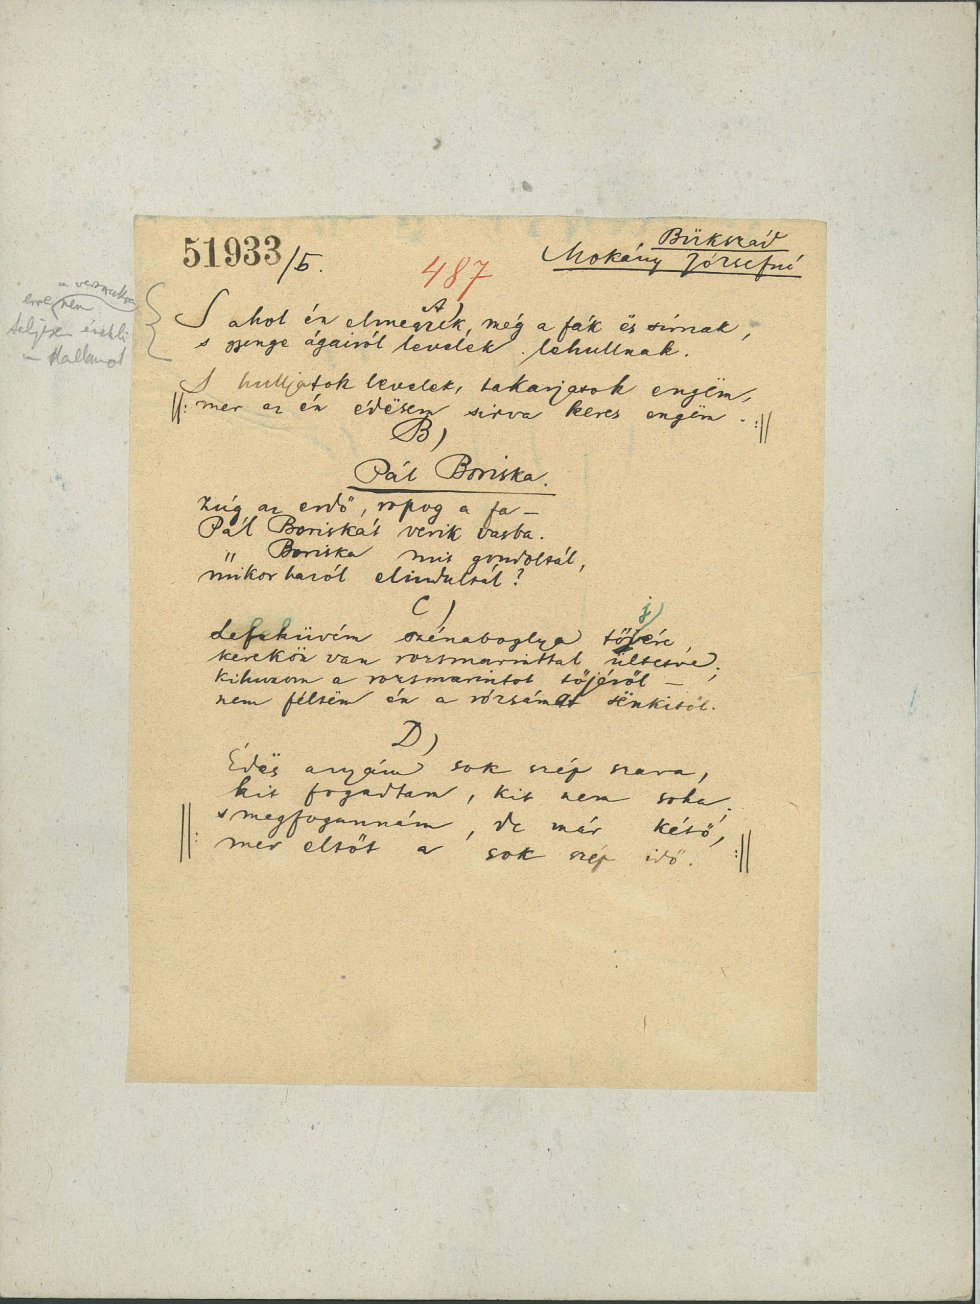 51933/5.
Bükszád
Mokány Józsefné
487
A)
S ahol én elmegyëk, még a fák ës sírnak,
s gyenge ágairól levelek lehullnak.
S hulljatok levelek, takarjatok engëm,
||: mer az én édësem sirva keres engëm. :||
B)
Pál Boriska.
Zúg az erdő, ropog a fa –
Pál Boriskát verik vasba.
" Boriska mit gondoltál,
mikor haról elindultál?
C)
Lefeküvém szénaboglya tövére, j)
kerekön van rozsmarinttal ültetve;
kihuzom a rozsmarintot tőjéről –
nem féltëm én a rózsámat sënkitől.
D)
Édës anyám sok szép szava,
kit fogadtam, kit nem soha.
||: s megfogannám, de már késő,
mer eltőt a sok szép idő. :||
a
nem